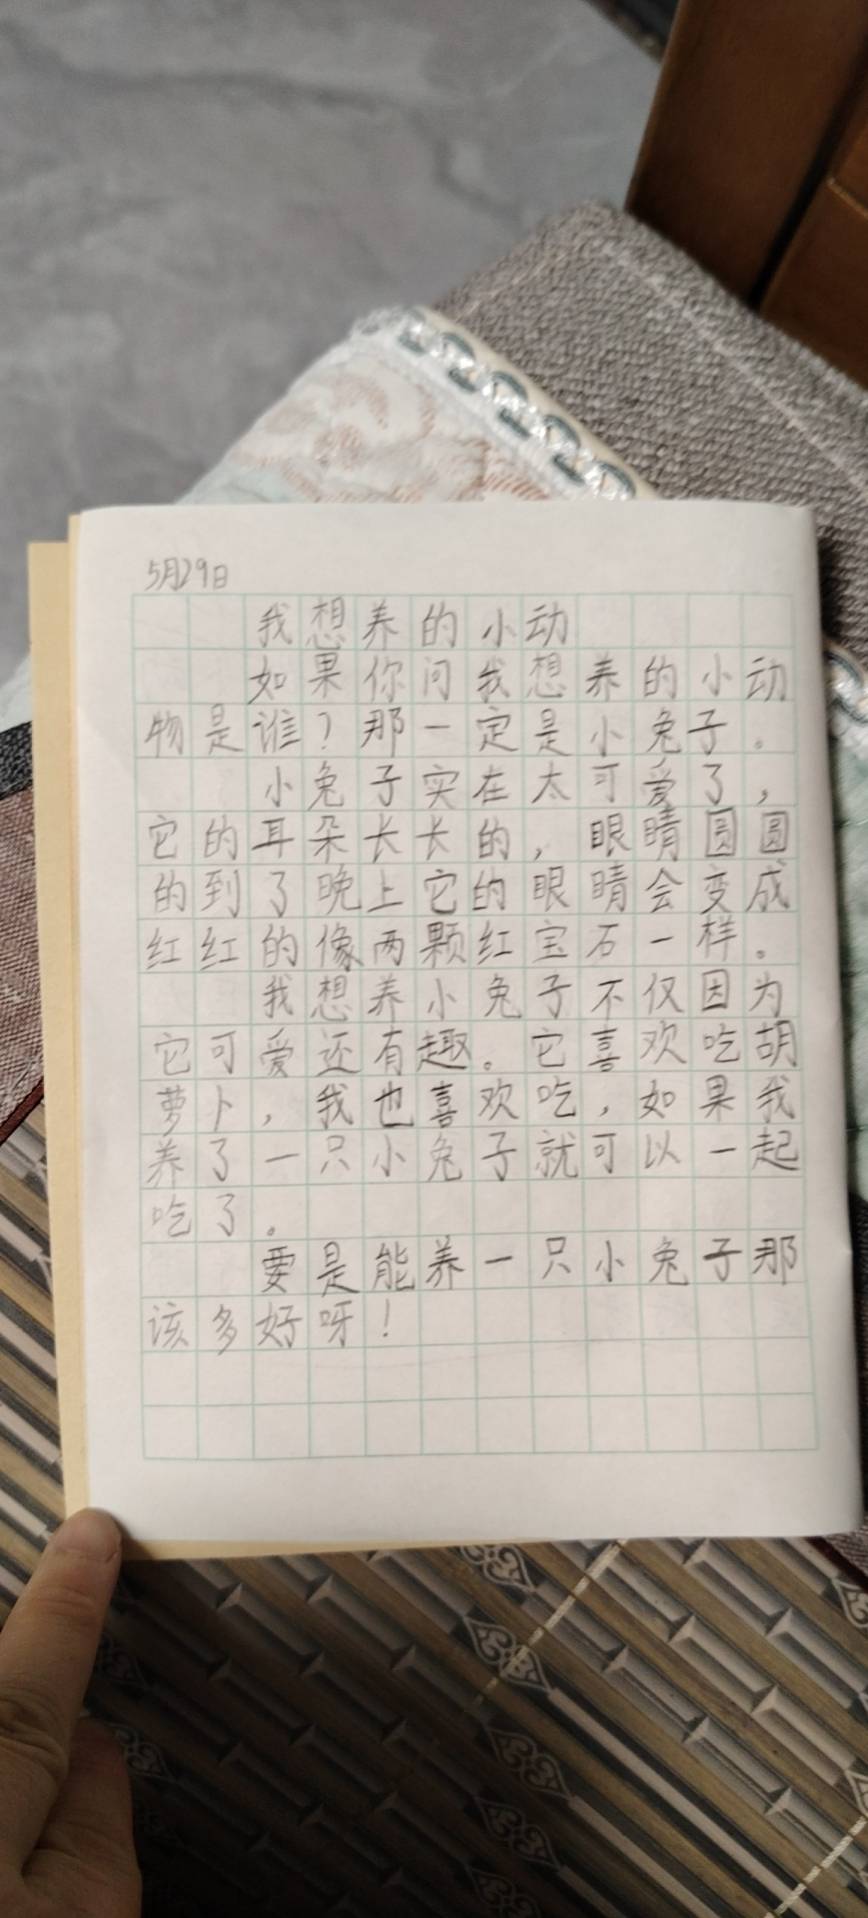 5月29日
我想养的小动
如果你问我想养的小动
物是谁？那一定是小兔子。
小兔子实在太可爱了，
它的耳朵长长的，眼睛圆圆
的到了晚上它的眼睛会变成
红红的像两颗红宝石一样。
我想养小兔子不仅因为
它可爱还有趣。它喜欢吃胡
萝卜，我也喜欢吃，如果我
养了一只小兔子就可以一起
吃了。
要是能养一只小兔子那
该多好呀！